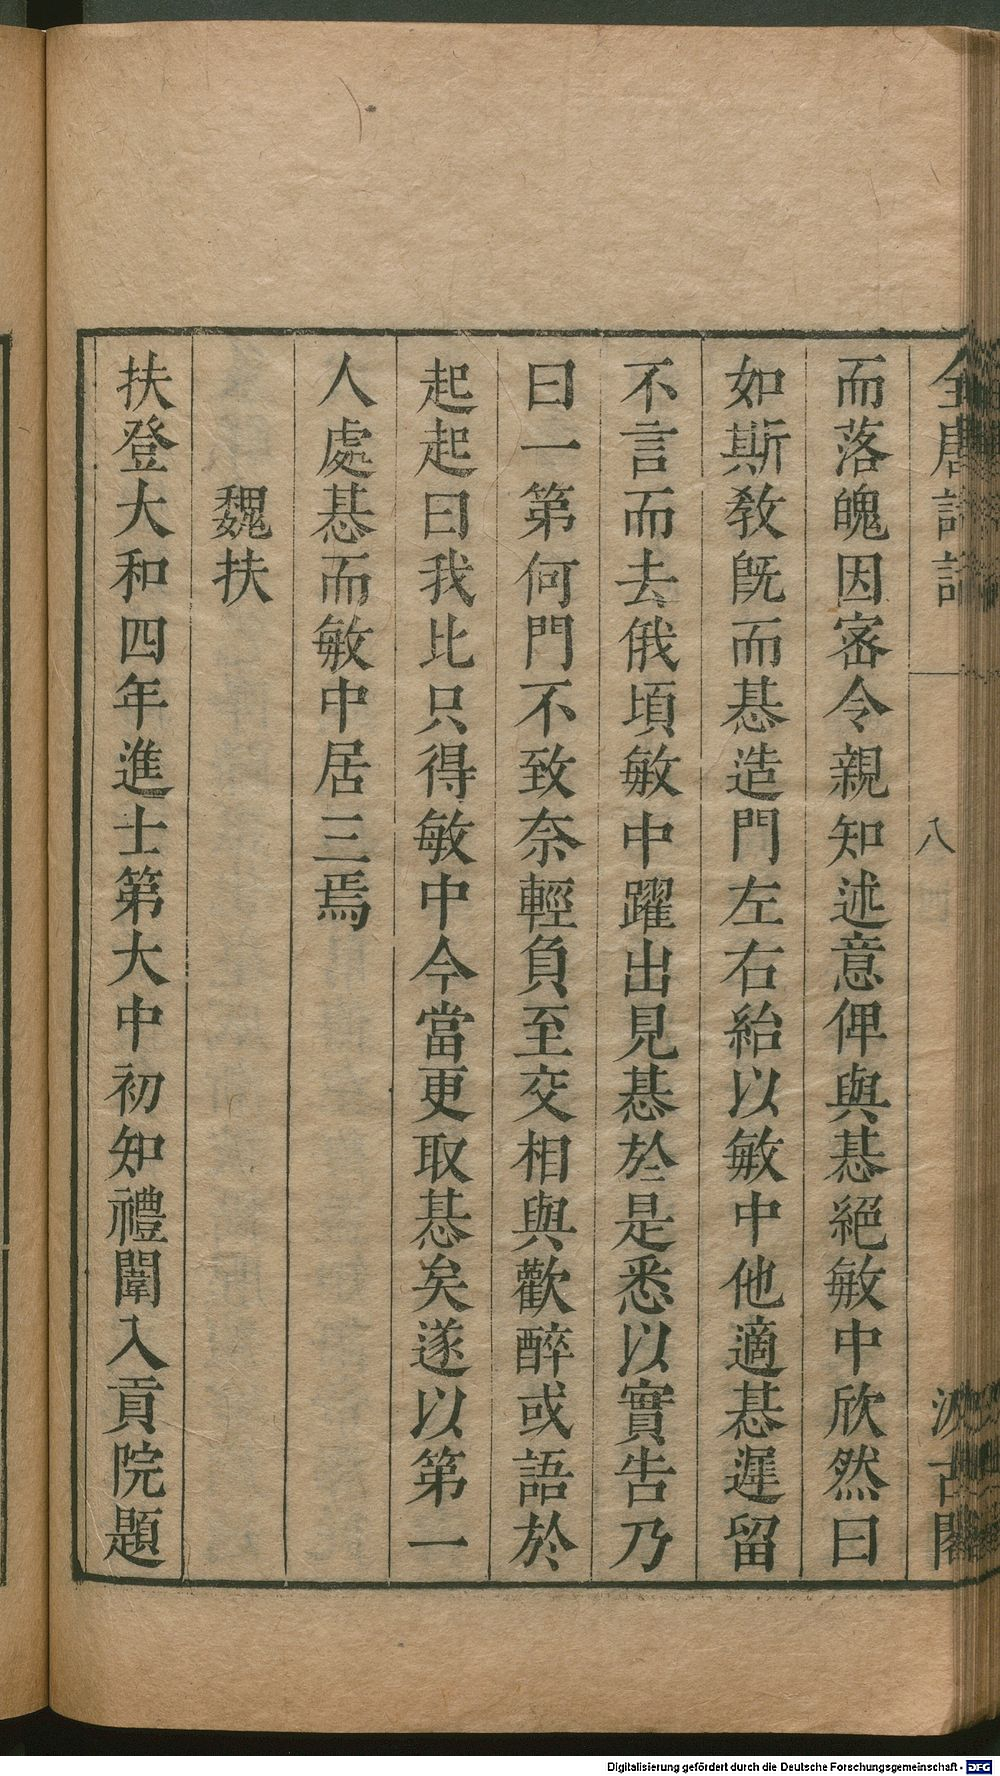 全唐詩話
八
汲古閣
而落魄因密令親知述意俾與惎絕敏中欣然曰
如斯敎旣而惎造門左右紿以敏中他適惎遲留
不言而去俄頃敏中躍出見惎於是悉以實告乃
曰一第何門不致奈輕負至交相與歡醉或語於
起起曰我比只得敏中今當更取惎矣遂以第一
人處惎而敏中居三焉
魏扶
扶登大和四年進士第大中初知禮闈入貢院題
Digitalisierung gefördert durch die Deutsche Forschungsgemeinschaft - DFG